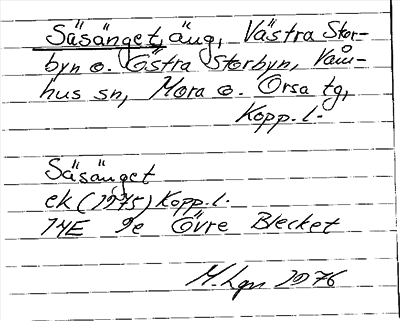 Säsänget, äng, Västra Stor-
byn o. Östra Storbyn, Våm-
hus sn, Mora o. Orsa tg,
Kopp. l.
Säsänget
ek (1975) Kopp. l.
14E 9e Övre Blecket
M. Lgn 1976